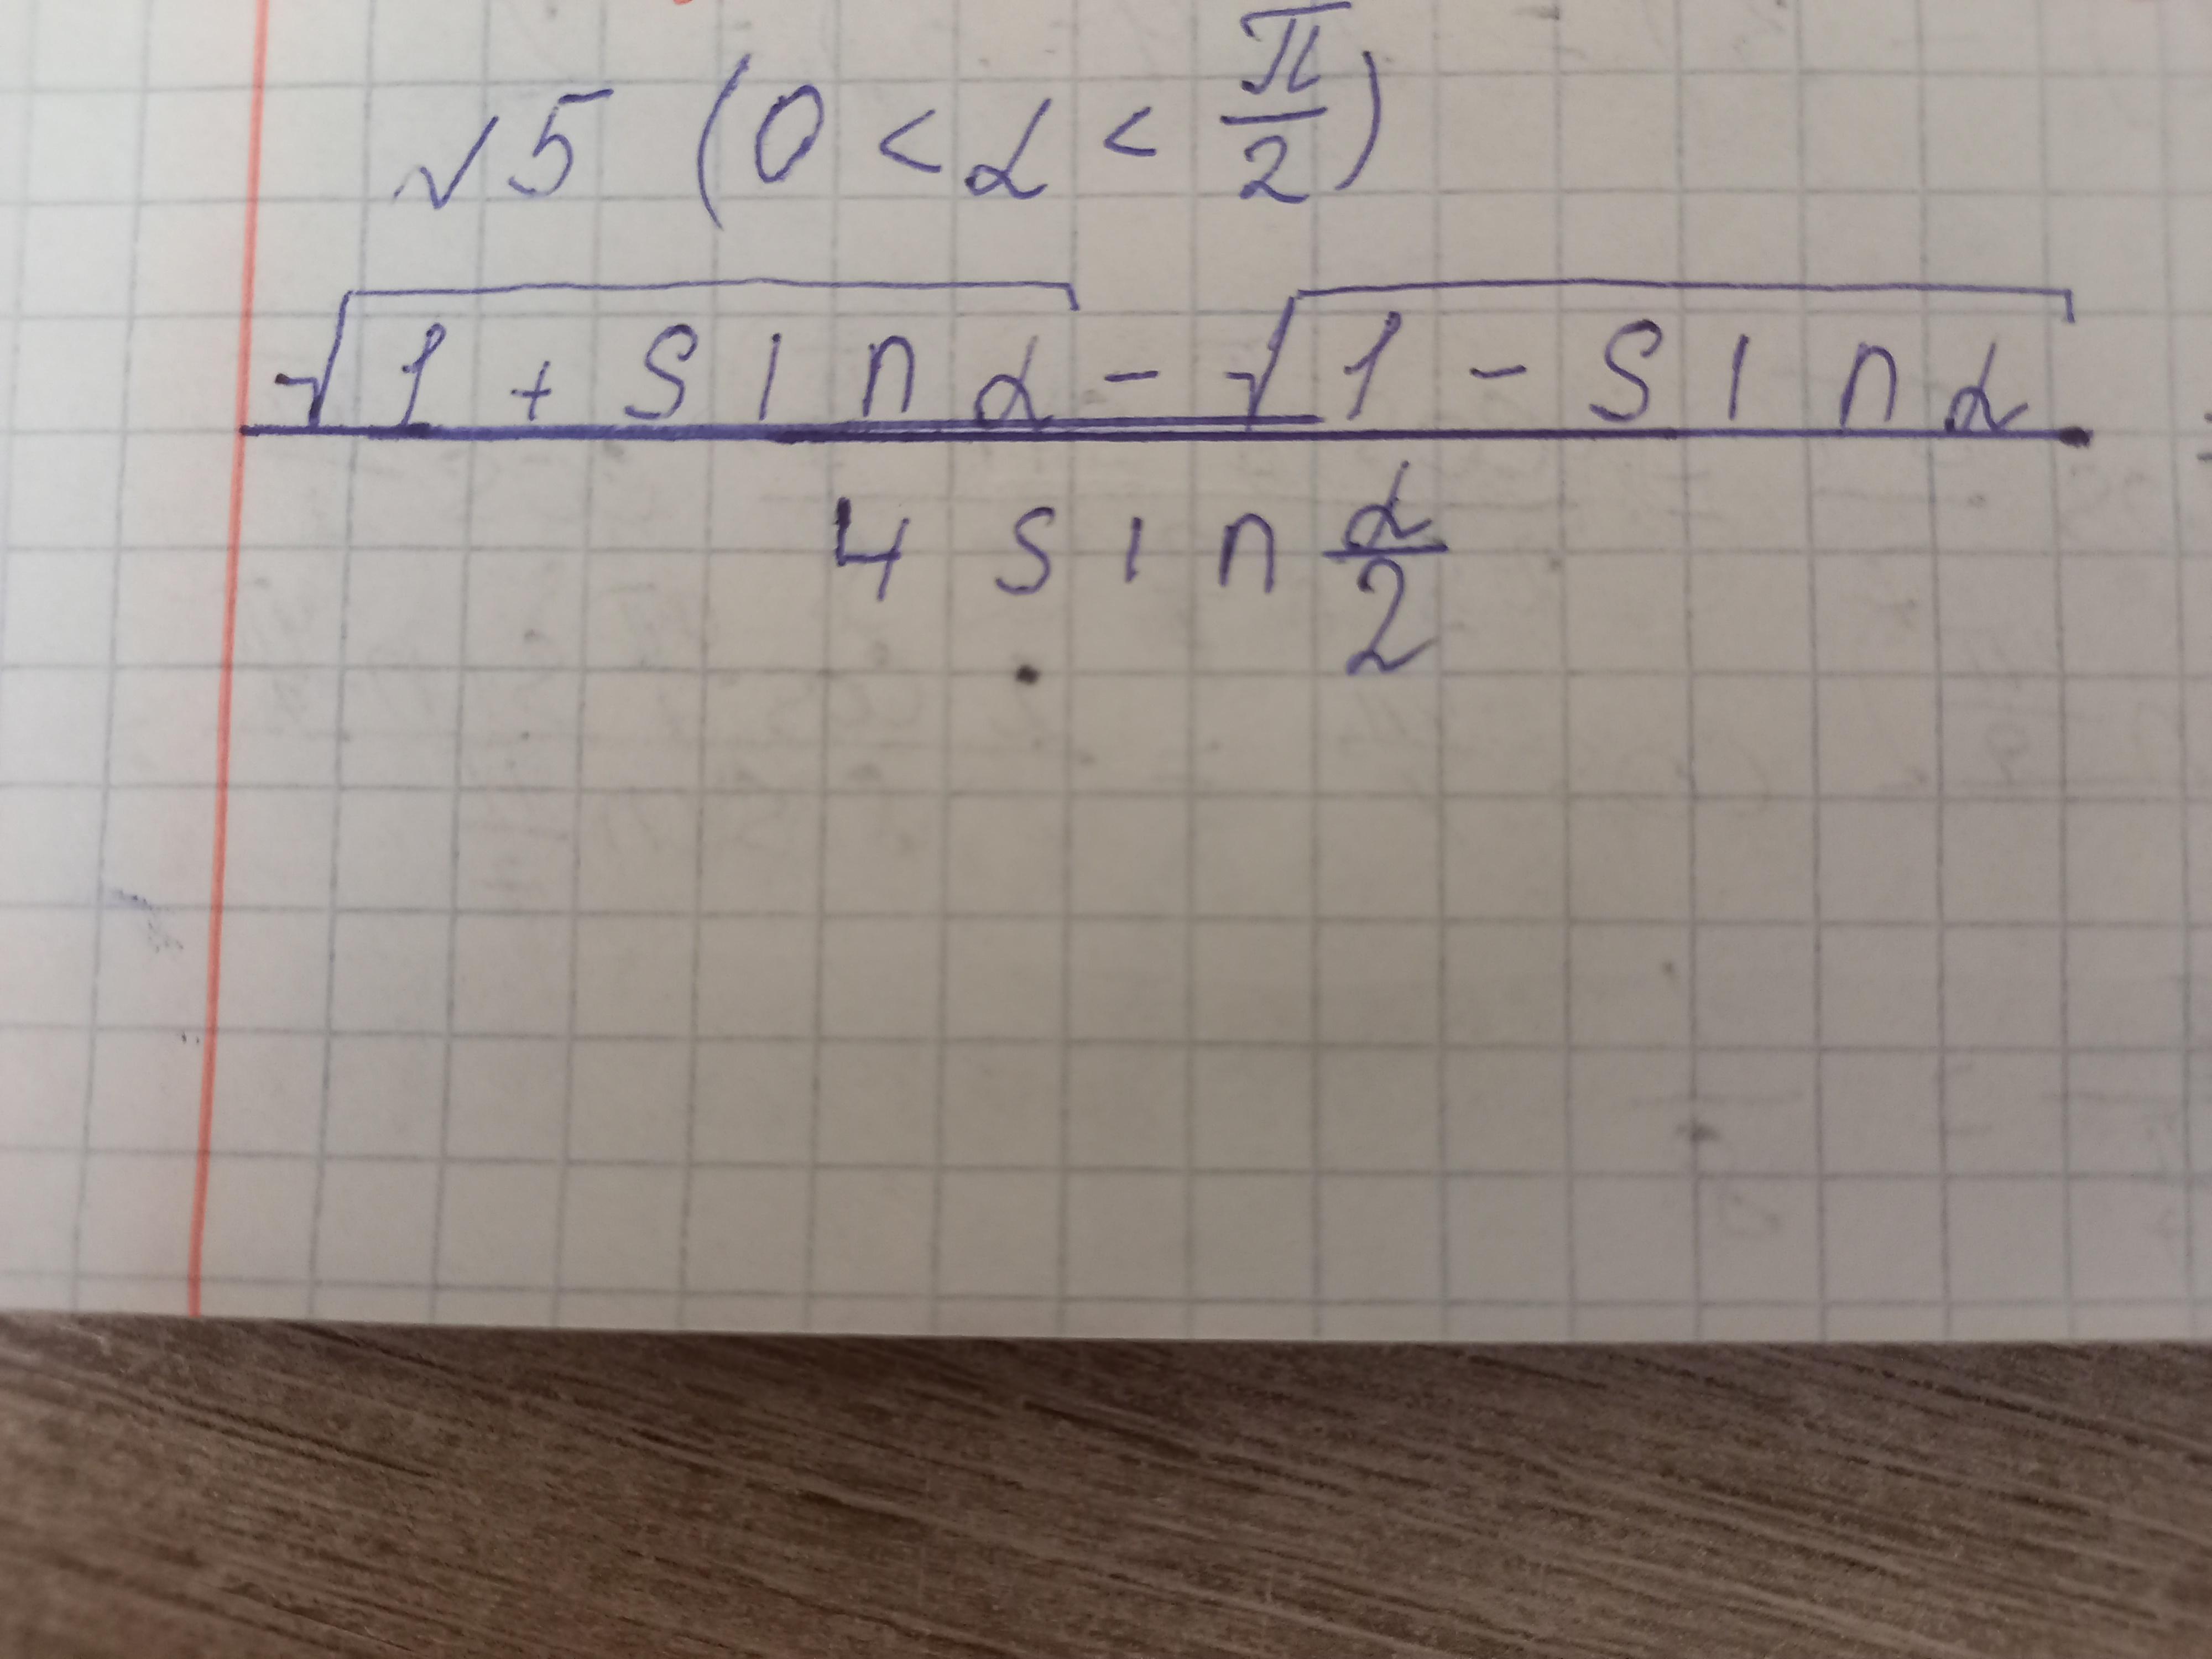 √5 (0 < α < π/2)
√(1 + sin α) - √(1 - sin α)
4 sin α/2